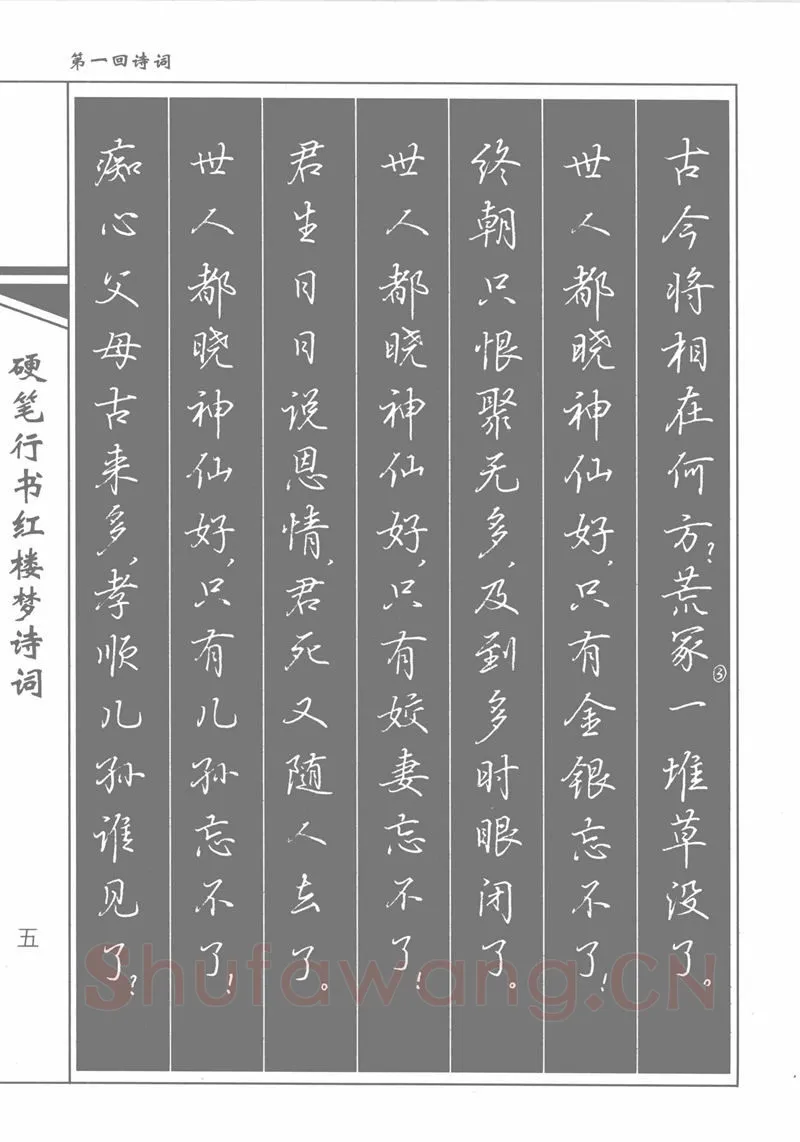 第一回诗词
古今将相在何方？荒冢③一堆草没了。
世人都晓神仙好，只有金银忘不了！
终朝只恨聚无多，及到多时眼闭了。
世人都晓神仙好，只有姣妻忘不了！
君生日日说恩情，君死又随人去了。
世人都晓神仙好，只有儿孙忘不了！
痴心父母古来多，孝顺儿孙谁见了？
硬笔行书红楼梦诗词
五
Shufawang.CN